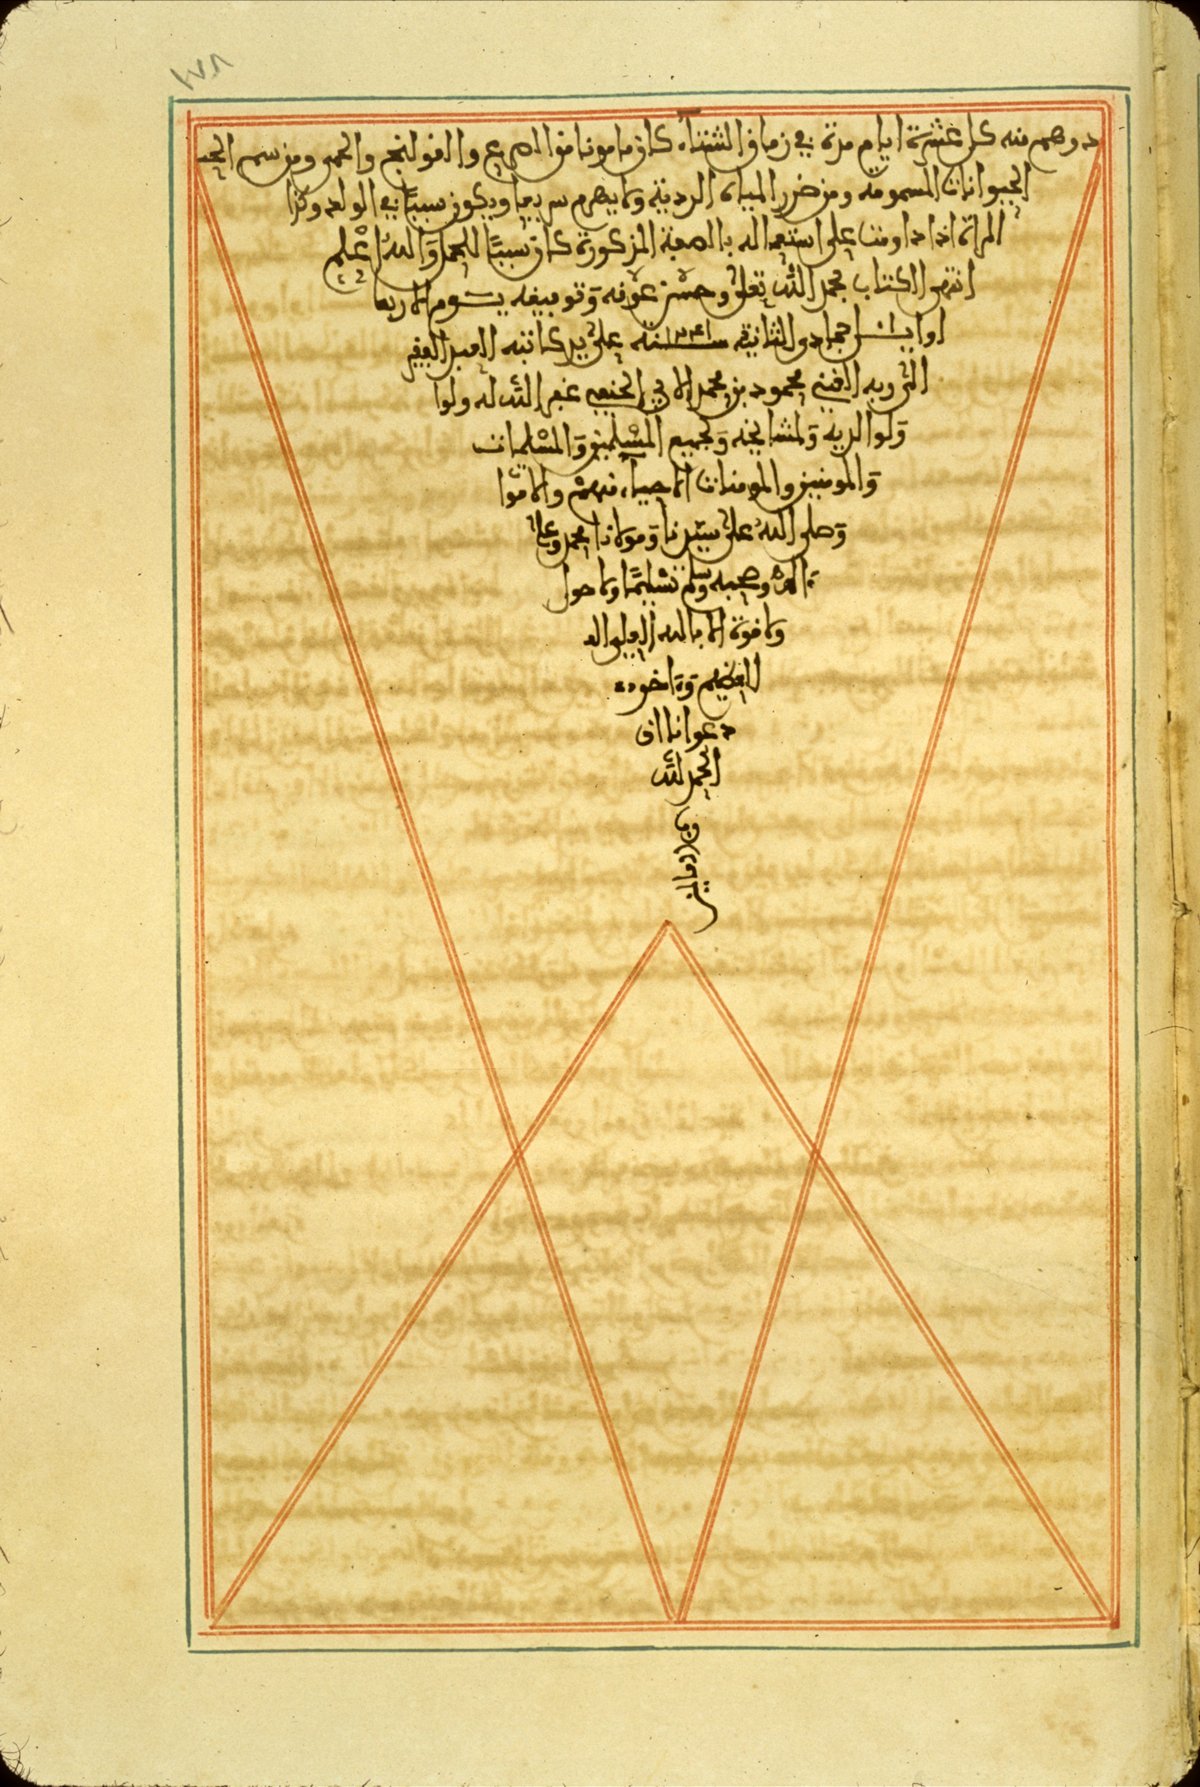 ١٧٨
درهم منه كل عشرة ايام مرة في زمان الشتاء كان مامونا من الصرع والقولنج والحمى ومن سم
الحيوانات المسمومة ومن ضرر المياه الردية ولا يهرم سريعا ويكون سببا في الولد وكذا
المراة اذا داومت على استعماله بالصفة المذكورة كان سببًا للحمل وَاللهُ اعْلم
انتهى الكتاب بحمد اللّه تعلى وحسْن عونه وَتوفيفه يـوم الاربعا
اوايـل جمادى الثانية سـنة على يد كاتبه العبد الفقير
الى ربه الغني محمود بن محمد الحنفي غفر اللّه له ولوا
وَلوالديه وَلمشايخه وَلجميع المسْلمين وَالمسْلمات
وَالمومنين والمومنات الاحياء منهم والاموا
وَصلى اللهُ على سيّدنا وَمولانا محمد وعلى
اله وصحبه وسلم تسْليمًا ولا حول
ولا قوة الا بالله العلي الع
العظيم وَءاخر
دعوانا ان
الحمد للّه
رب
العالمين